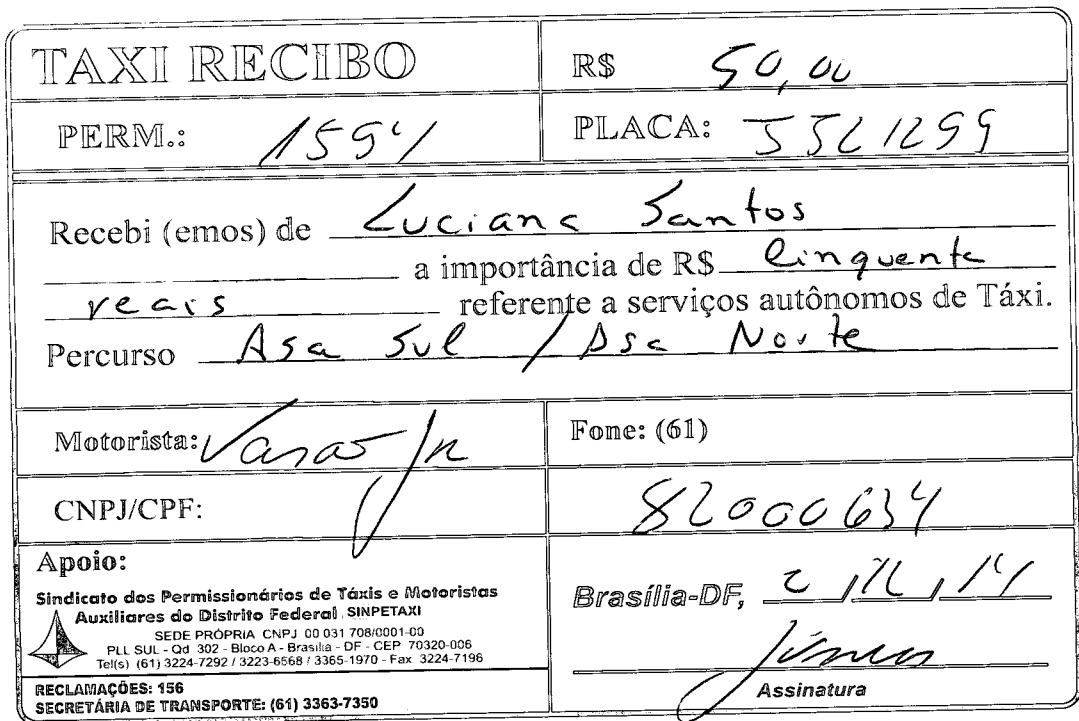 TAXI RECIBO
R$ 50,00
PERM.: 1594
PLACA: JJL1299
Recebi (emos) de Luciana Santos
a importância de R$ Cinquenta
reais referente a serviços autônomos de Táxi.
Percurso Asa Sul / Asa Norte
Motorista: Jr
Fone: (61)
CNPJ/CPF:
82000634
Apoio:
Sindicato dos Permissionários de Táxis e Motoristas
Auxiliares do Distrito Federal SINPETAXI
SEDE PRÓPRIA CNPJ 00 031 708/0001-00
PLL SUL - Qd 302 - Bloco A - Brasília - DF - CEP 70320-006
Tel(s) (61) 3224-7292 / 3223-6568 / 3365-1970 - Fax 3224-7196
RECLAMAÇÕES: 156
SECRETÁRIA DE TRANSPORTE: (61) 3363-7350
Brasília-DF, 2 /12 /14
Assinatura